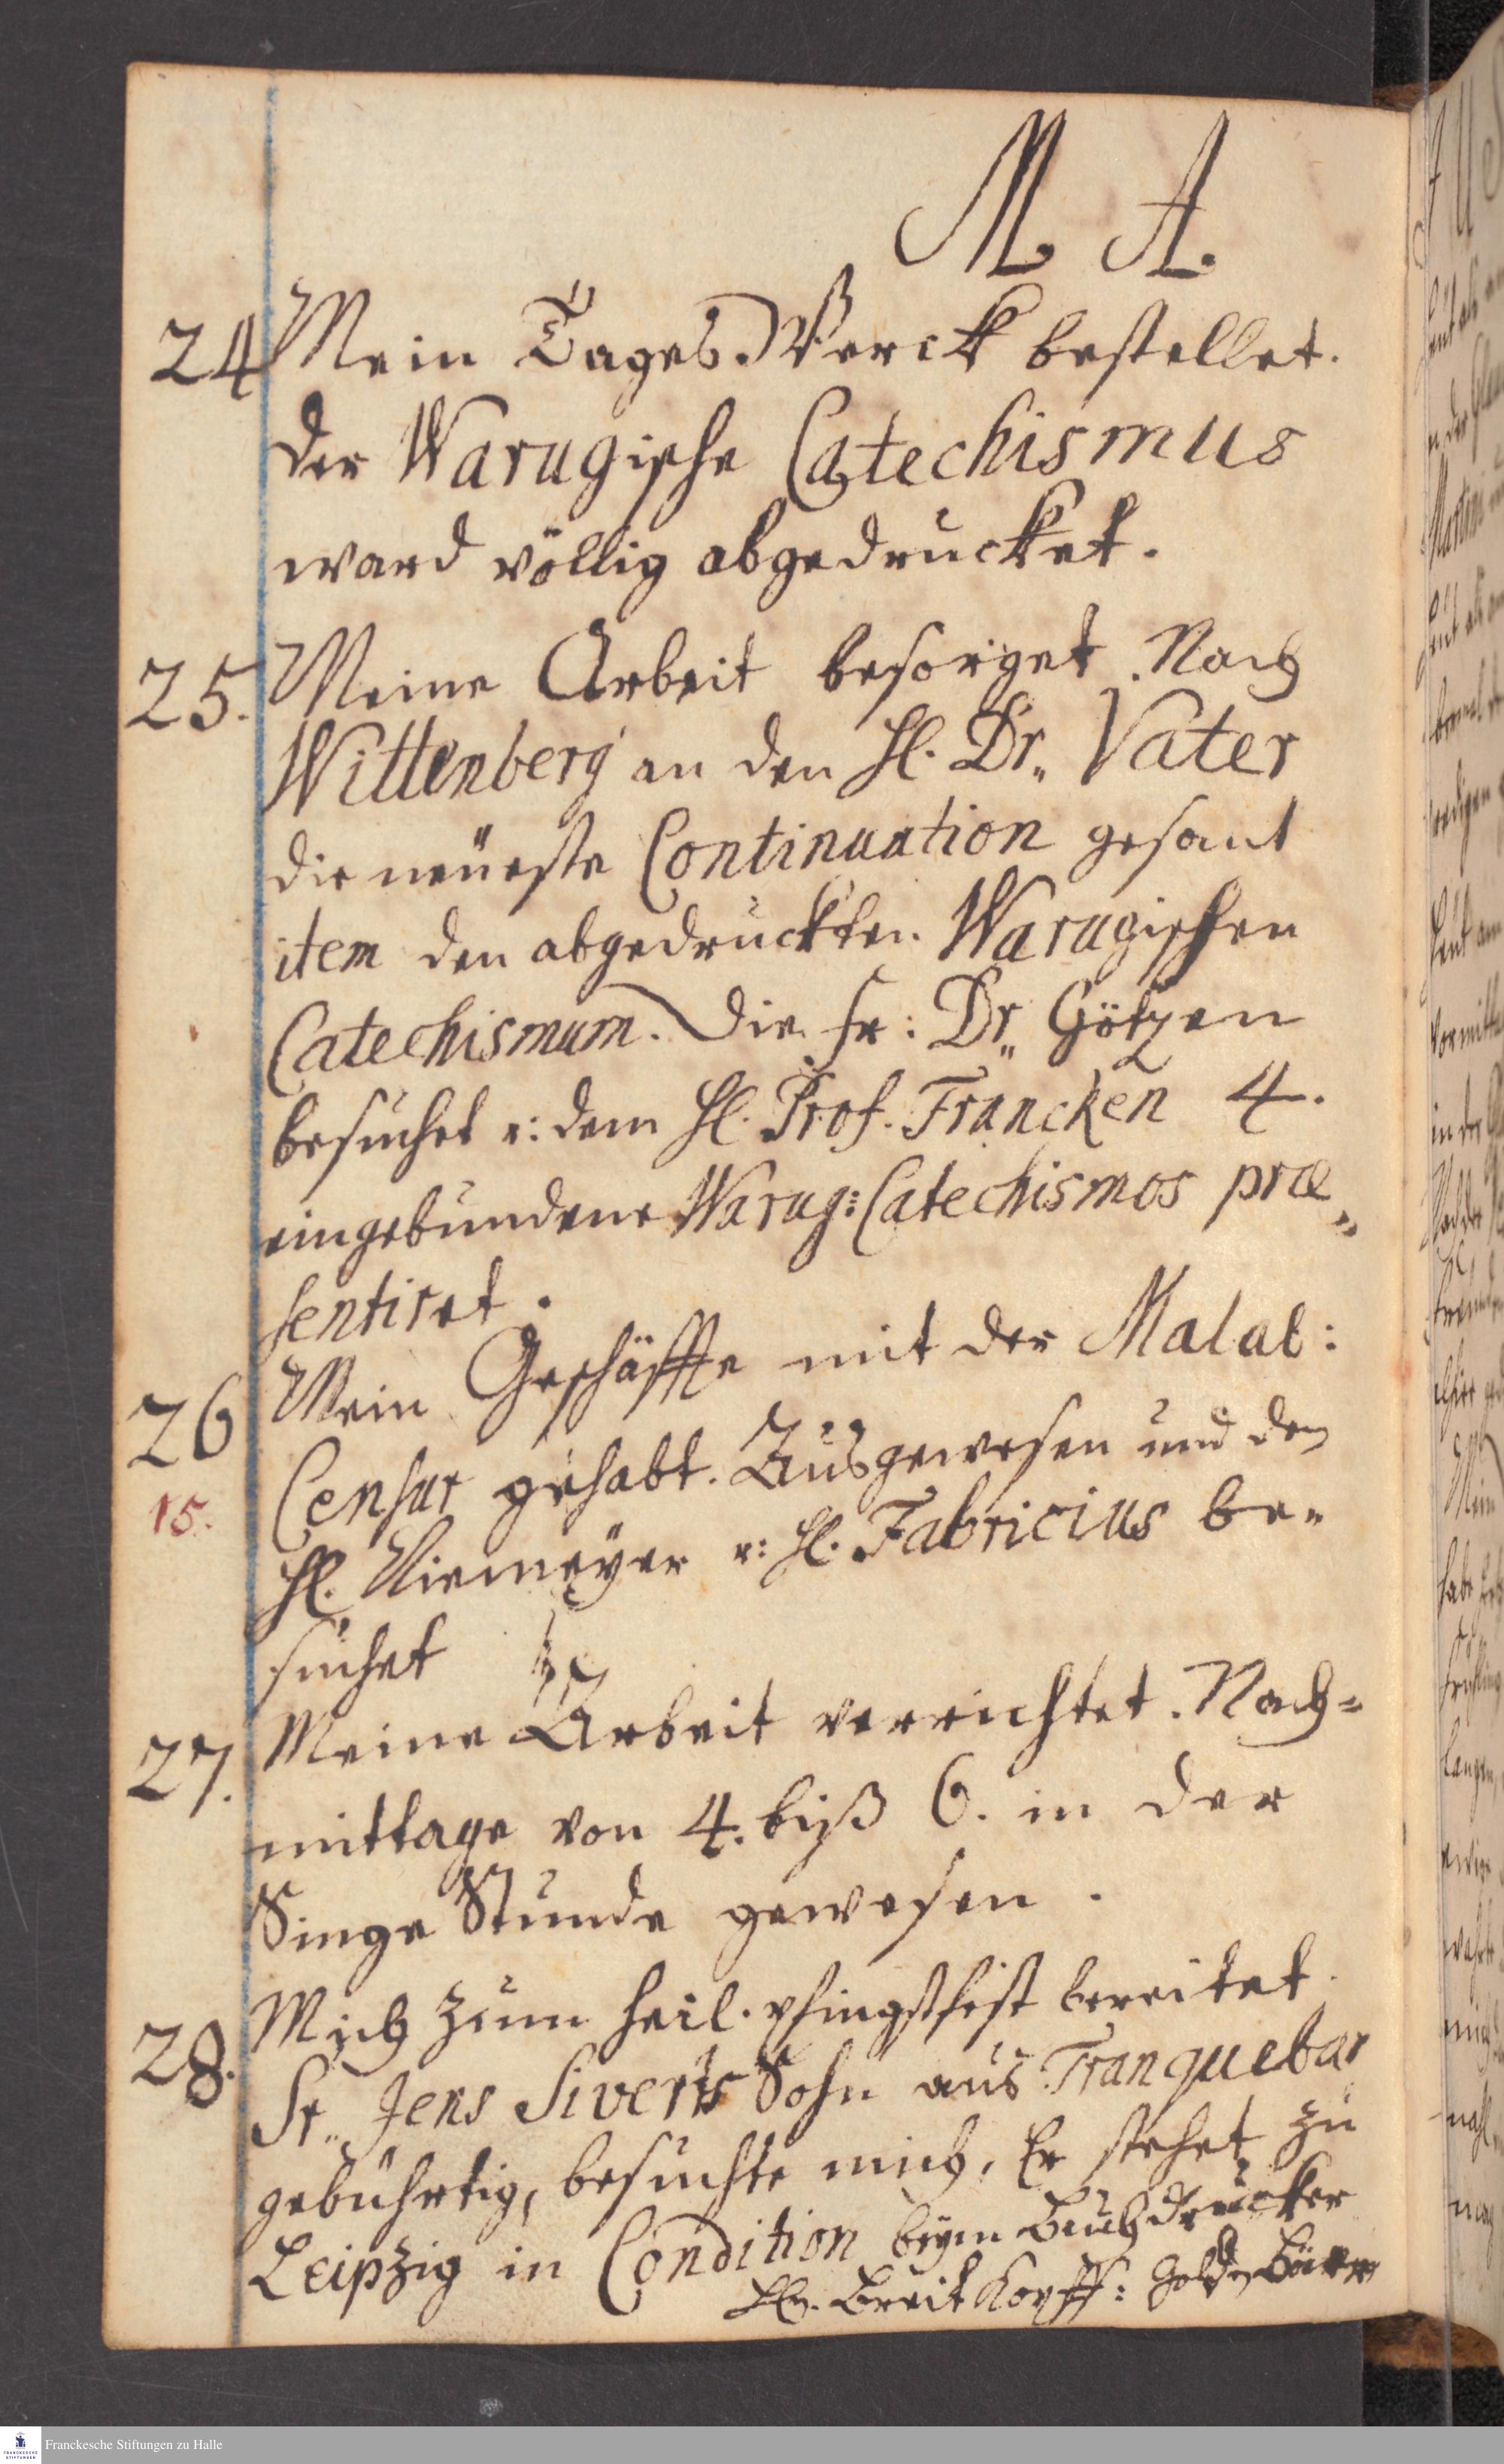 M A.
24 Mein Tages-Werck bestellet.
Der Warugische Catechismus
ward völlig abgedrucket.
25. Meine Arbeit besorget. Nach
Wittenberg an den H. Dr. Vater
die neüeste Continuation gesant
item den abgedruckten Warugischen
Catechismum. Die Fr: Dr. Götzen
besuchet u: dem H. Prof. Francken 4.
eingebundene Warug: Catechismos præ„
sentiret.
26 Mein Geschäffte mit der Malab:
Censur gehabt. Ausgewesen und den
15. H. Niemeÿer u: H. Fabricius be„
suchet
27. Meine Arbeit verrichtet. Nach„
mittage von 4. biß 6. in der
Singe Stunde gewesen.
28. Mich zum heil. Pfingstfest bereitet.
Sr. Jens Siverts Sohn aus Tranquebar
gebührtig, besuchte mich, Er stehet zu
Leipzig in Condition beÿm Buchdrucker
Hn. Breitkopff: Goldn Bären
Franckesche Stiftungen zu Halle